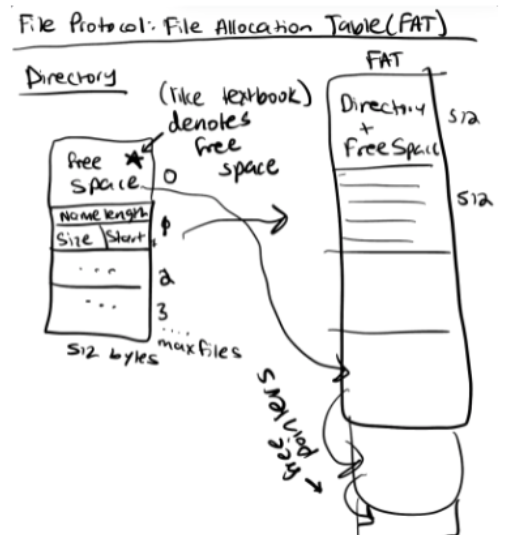 File Protocol: File Allocation Table (FAT)
Directory
(like textbook)
denotes
free
space
free ★
space
0
Name length
Size Start
1
...
2
...
3
....
512 bytes
max files
FAT
Directory
+
Free Space
512
512
free
pointers